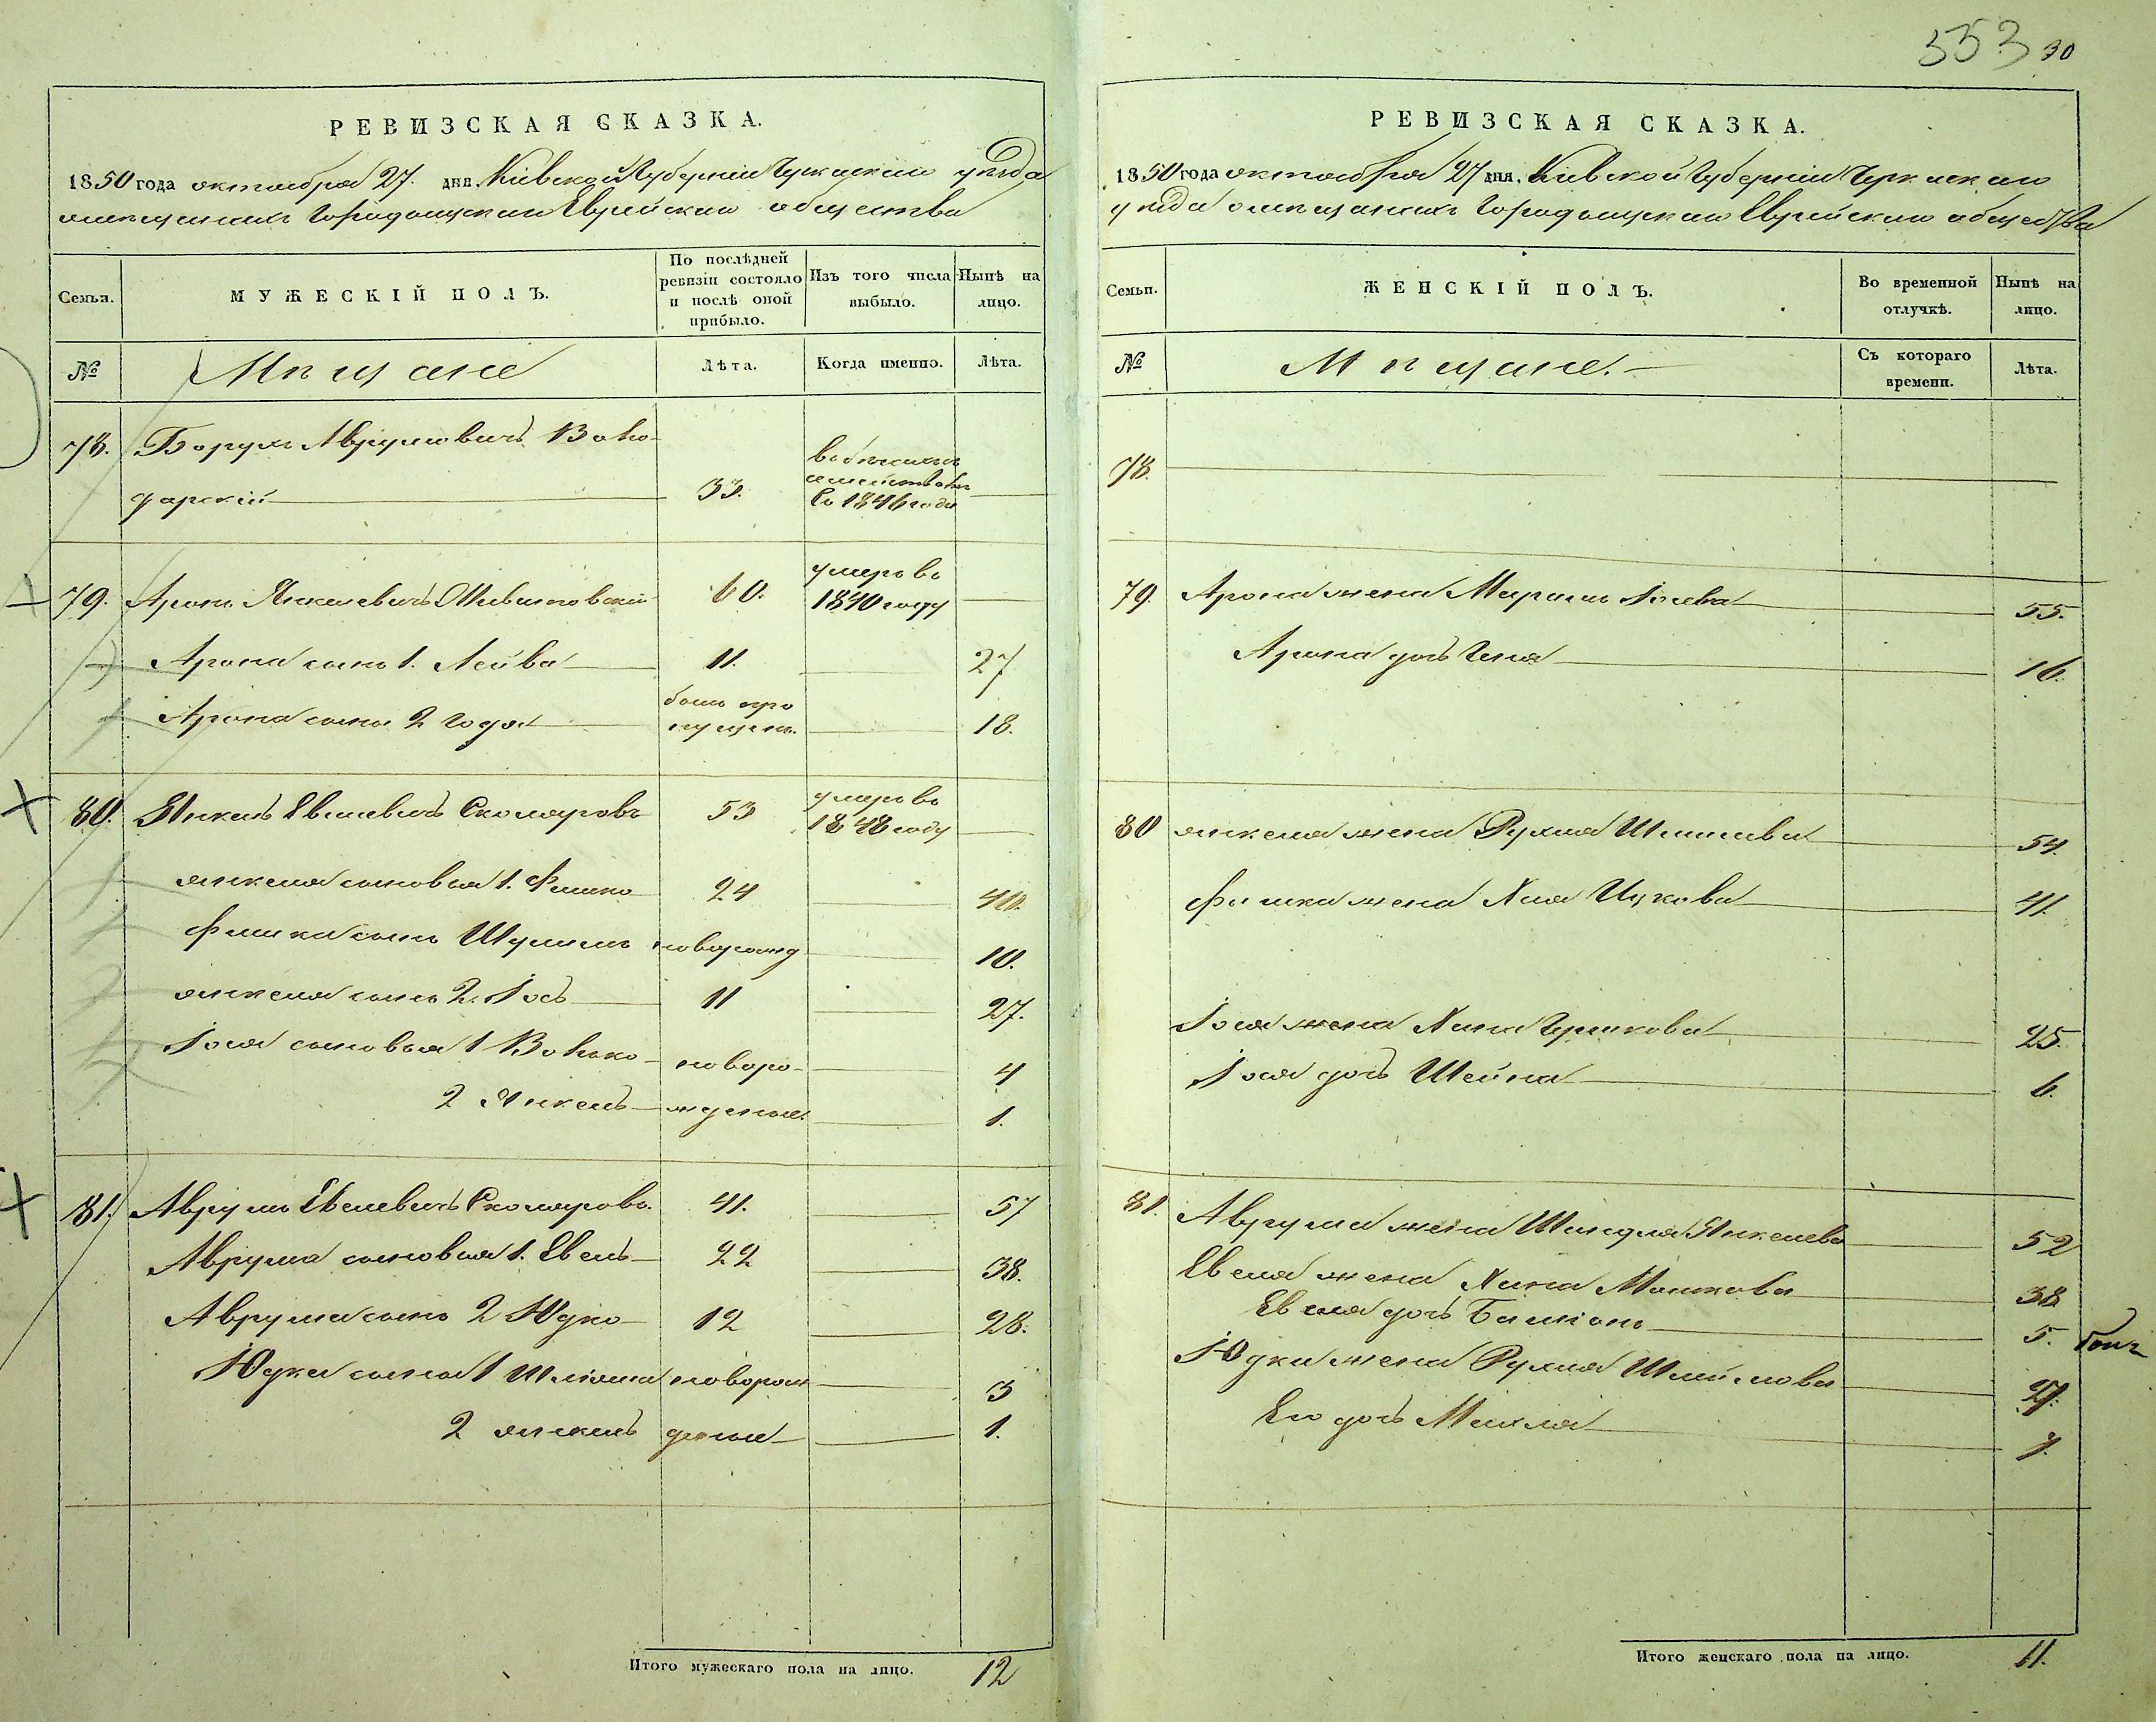 553 30
РЕВИЗСКАЯ СКАЗКА.
1850 года октября 27. дня. Кіевской Губерніи Черкаскаго уѣзда
о мѣщанахъ Городищскаго Еврейскаго общества
Семья.
МУЖЕСКІЙ ПОЛЪ.
По послѣдней ревизіи состояло и послѣ оной прибыло.
Изъ того числа выбыло.
Нынѣ на лицо.
№
Мѣщане
Лѣта.
Когда именно.
Лѣта.
78. Борухъ Аврумовичъ Воло-
дарскій 33. въ 1846 году
79. Аронъ Янкелевичъ 60. умеръ въ 1840 году
Арона сынъ 1. Лейва 11. 27
Арона сынъ 2 Годя былъ пропущен. 18.
80. Янкель Евелевичъ Скоморовъ 53 умеръ въ 1848 году
янкеля сыновья 1. Фишко 24 40.
Фишки сынъ Шулимъ новорожд 10.
янкеля сынъ 2. Іось 11 27.
Іося сыновья 1 Волько новоро- 4
2 Янкель жденые. 1.
81. Аврумъ Евелевичъ Скоморовъ. 41. 57
Аврума сыновья 1. Евель 22 38.
Аврума сынъ 2 Юдко 12 28.
Юдки сыновья 1 Шлиома новорож 3
2 янкель деные 1.
Итого мужескаго пола на лицо. 12
РЕВИЗСКАЯ СКАЗКА.
1850 года октября 27 дня. Кіевской Губерніи Черкаскаго
уѣзда о мѣщанахъ Городищскаго Еврейскаго общества
Семьи.
ЖЕНСКІЙ ПОЛЪ.
Во временной отлучкѣ.
Нынѣ на лицо.
№
Мѣщане.
Съ котораго времени.
Лѣта.
78.
79. Арона жена Миріамъ Іосева 55.
Арона дочь Геня 16.
80 янкеля жена Рухля 54.
Фишки жена Хая Ицкова 41.
Іося жена Хана Гершкова 25.
Іося дочь Шейна 6.
81. Аврума жена Шендля Янкелева 52
Евеля жена Хана Мошкова 38
Евеля дочь 5.
Юдки жена Рухля Шлиомова 27.
Его дочь Михля 7.
Итого женскаго пола на лицо. 11.